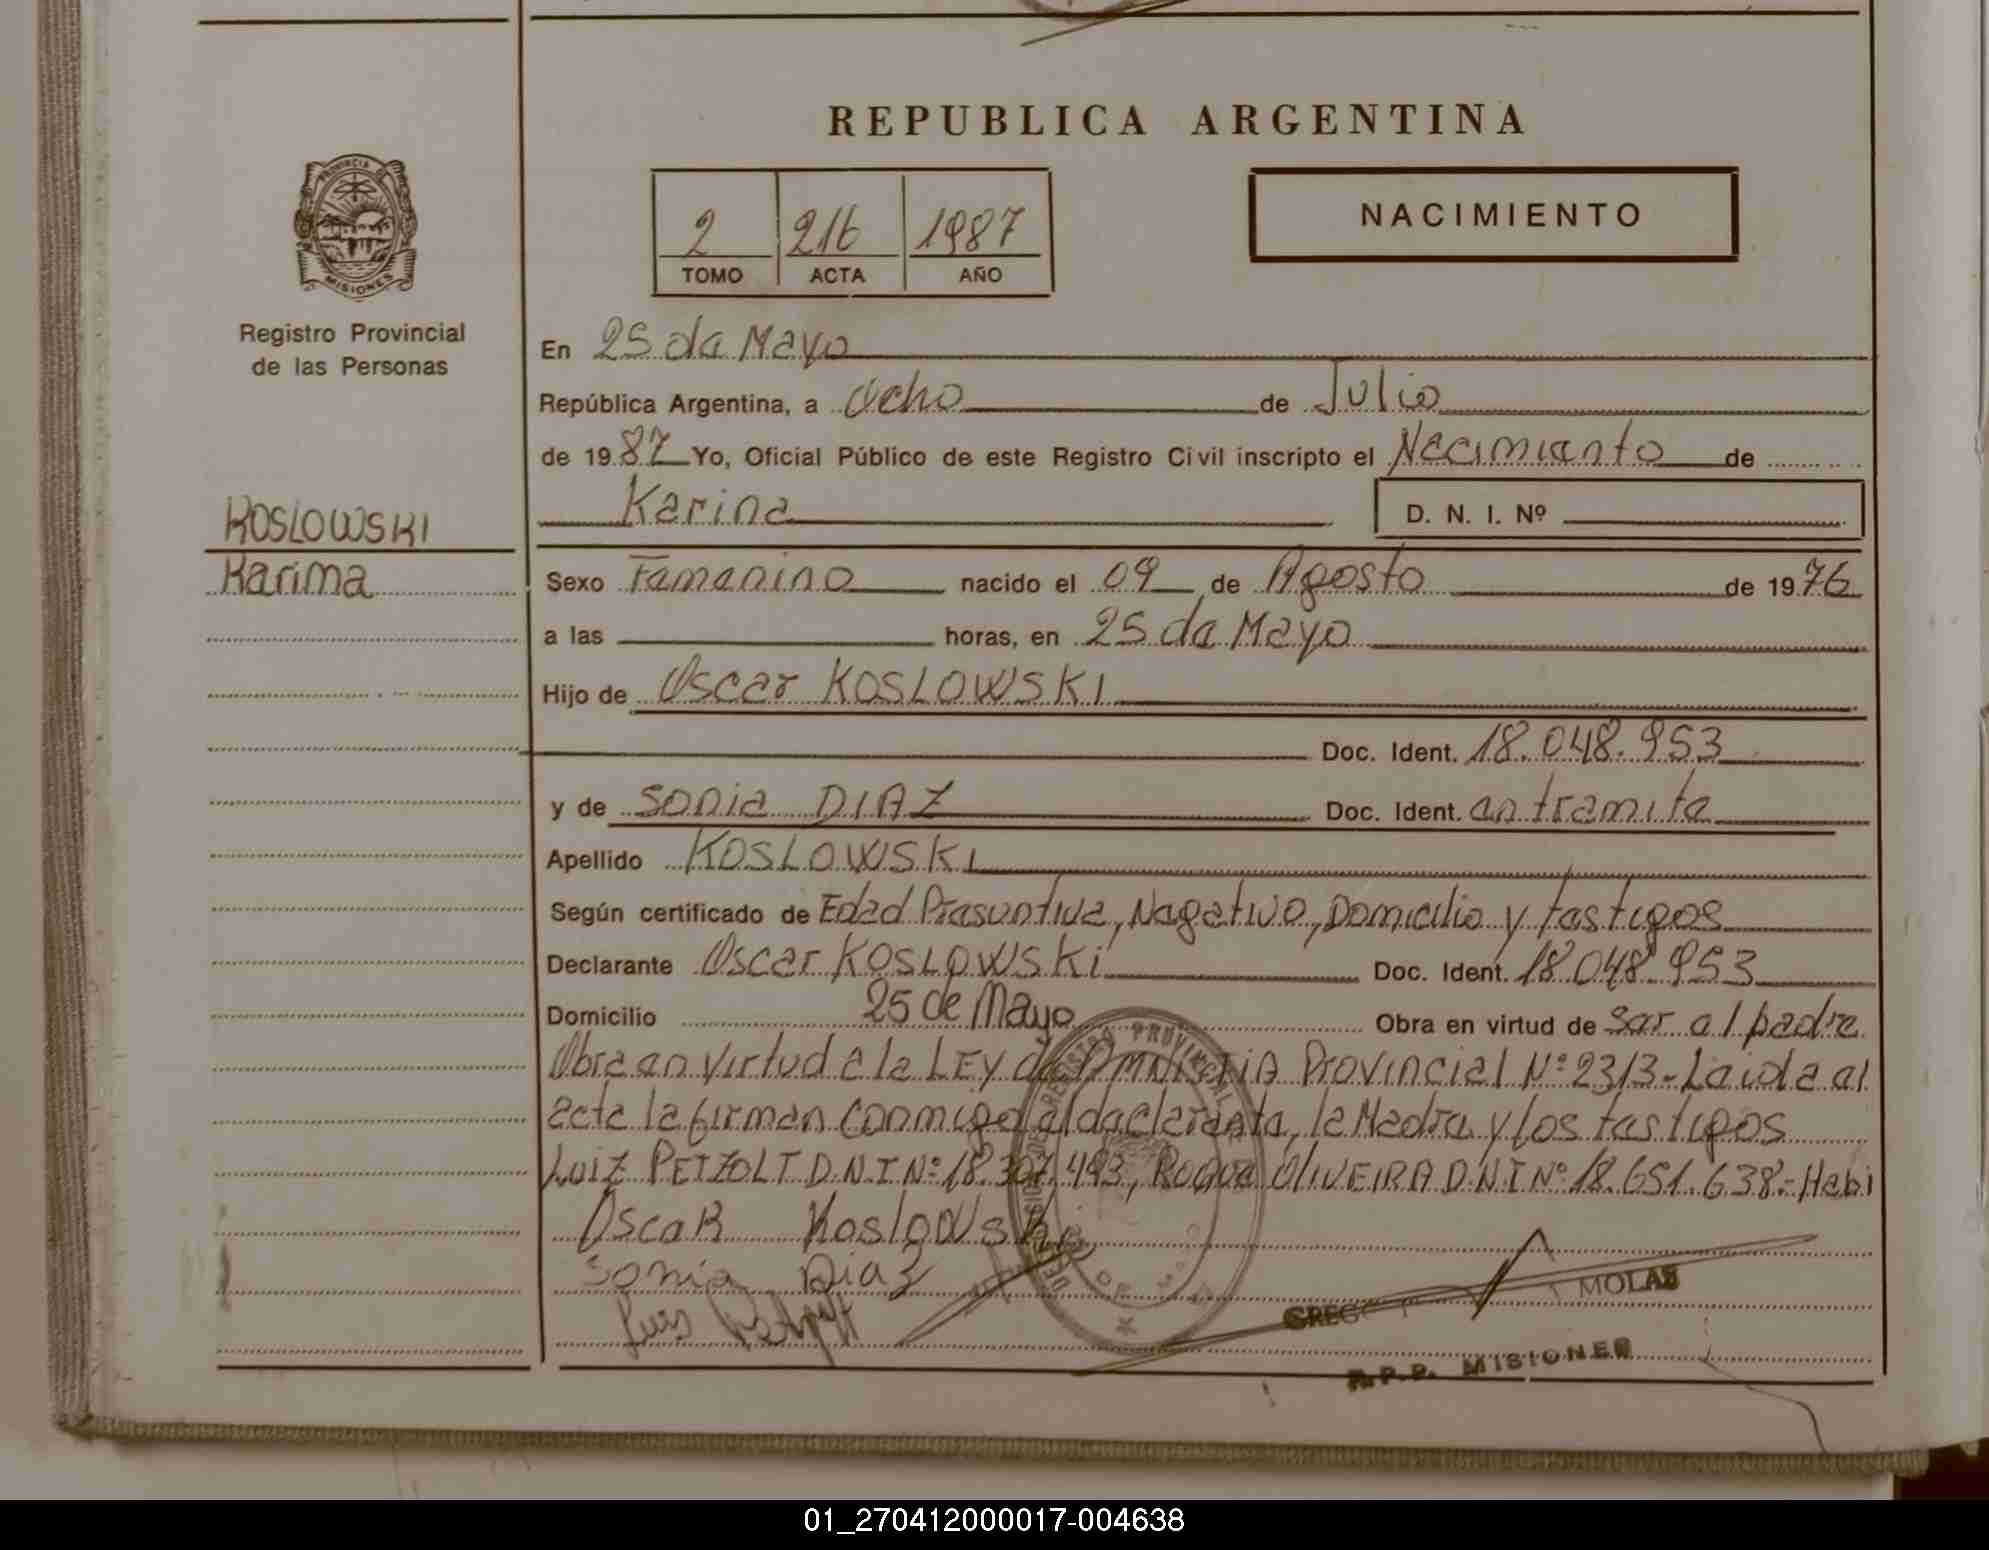 REPUBLICA ARGENTINA
PROVINCIA DE
MISIONES
Registro Provincial
de las Personas
2 216 1987
TOMO ACTA AÑO
NACIMIENTO
En 25 de Mayo
República Argentina, a Ocho de Julio
de 1987 Yo, Oficial Público de este Registro Civil inscripto el Nacimiento de
Karina
D. N. I. Nº
KOSLOWSKI
Karina
Sexo Femenino nacido el 09 de Agosto de 1976
a las horas, en 25 de Mayo
Hijo de Oscar KOSLOWSKI
Doc. Ident. 18.048.953
y de Sonia DIAZ Doc. Ident. en tramite
Apellido KOSLOWSKI
Según certificado de Edad Presuntiva, Negativo, Domicilio y testigos
Declarante Oscar KOSLOWSKi Doc. Ident. 18.048.953
Domicilio 25 de Mayo Obra en virtud de ser el padre
Obra en virtud a la LEY de AMNISTIA Provincial Nº 2313.- Leida el
acta la firman conmigo el declarante, la Madre y los testigos
LUIZ PETZOLT D.N.I Nº 18.307.493, Roque OLIVEIRA D.N.I Nº 18.651.638.- Habi
OscaR Koslowski
Sonia Diaz
Luis
MOLAS
R.P.P. MISIONES
01_270412000017-004638